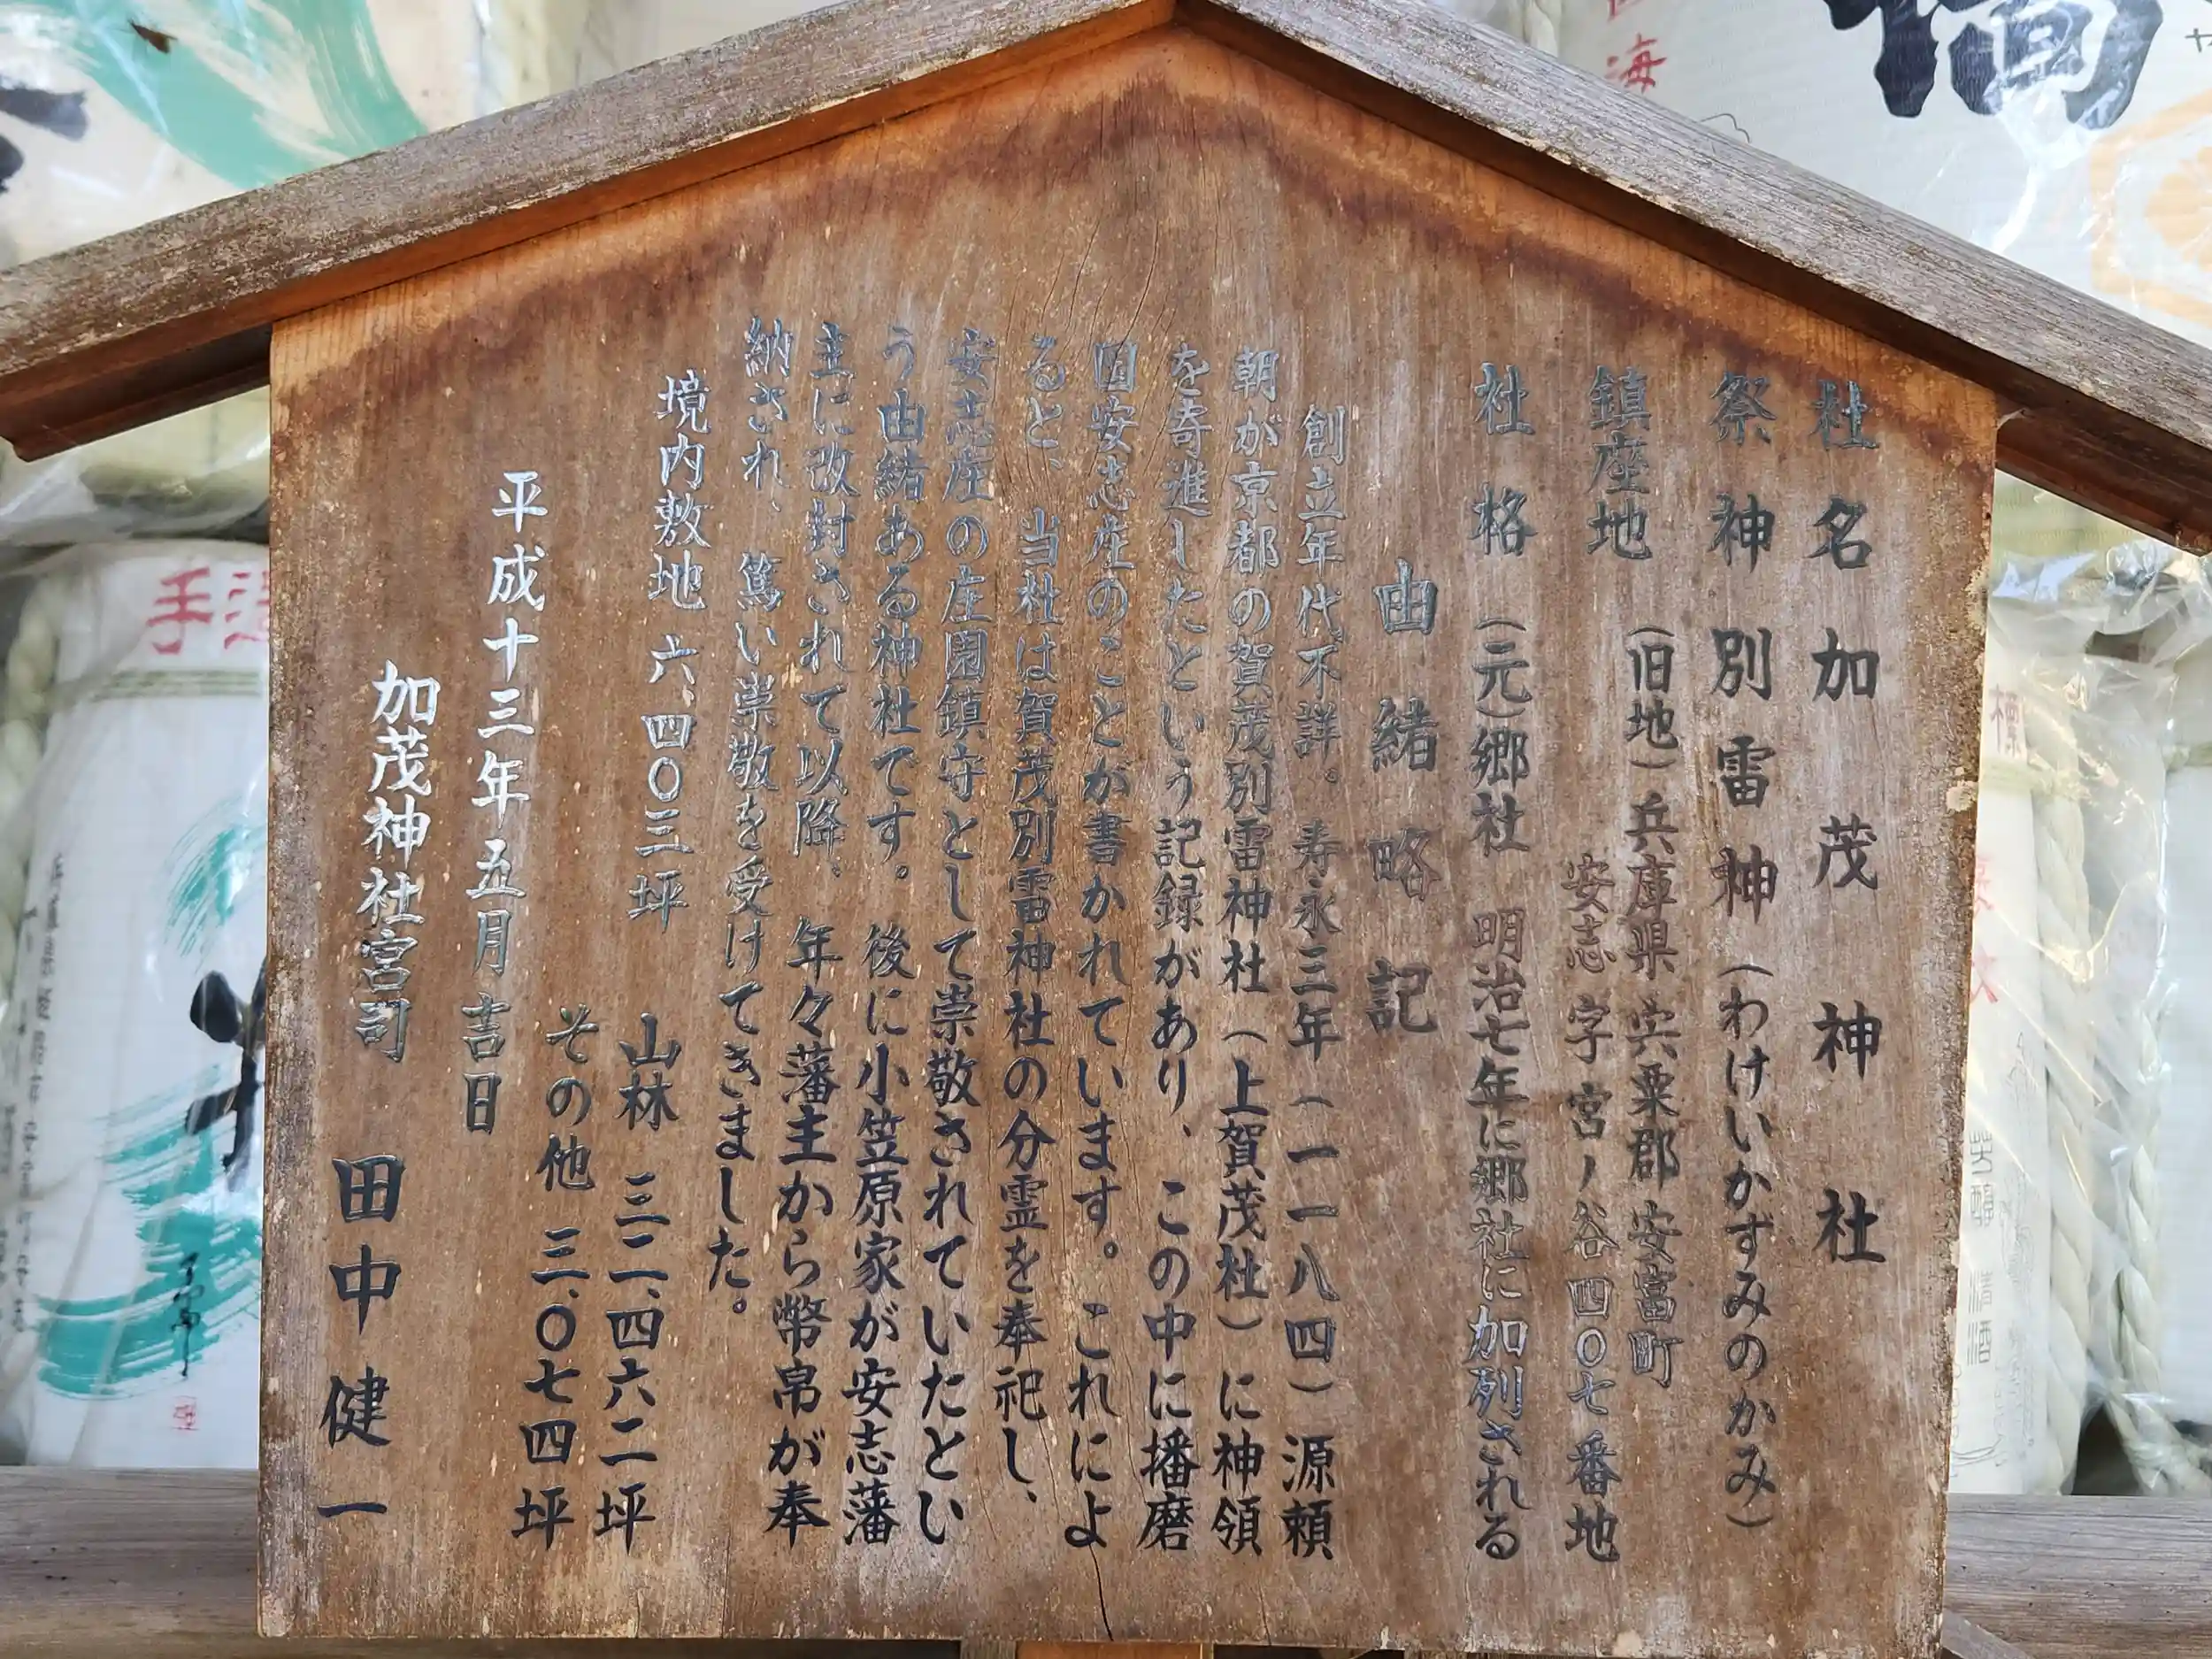 社名 加茂神社
祭神 別雷神(わけいかずみのかみ)
鎮座地 (旧地)兵庫県 宍粟郡 安富町
安志 字 宮ノ谷四〇七番地
社格 (元)郷社 明治七年に郷社に加列される
由緒略記
創立年代不詳。寿永三年(一一八四)源頼
朝が京都の賀茂別雷神社(上賀茂社)に神領
を寄進したという記録があり、この中に播磨
国安志庄のことが書かれています。これによ
ると、当社は賀茂別雷神社の分霊を奉祀し、
安志庄の庄園鎮守として崇敬されていたとい
う由緒ある神社です。後に小笠原家が安志藩
主に改封されて以降、年々藩主から幣帛が奉
納され、篤い崇敬を受けてきました。
境内敷地 六、四〇三坪 山林 三二、四六二坪
その他 三、〇七四坪
平成十三年五月吉日
加茂神社宮司 田中健一
手造
海